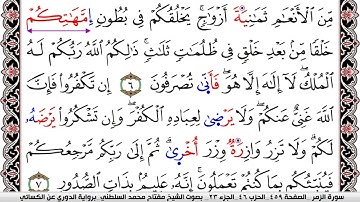 مِّنَ ٱلْأَنْعَٰمِ ثَمَٰنِيَةَ أَزْوَٰجٍۚ يَخْلُقُكُمْ فِى بُطُونِ إِمَّهَٰتِكُمْ
خَلْقًا مِّنۢ بَعْدِ خَلْقٍ فِى ظُلُمَٰتٍ ثَلَٰثٍۚ ذَٰلِكُمُ ٱللَّهُ رَبُّكُمْ لَهُ
ٱلْمُلْكُۖ لَآ إِلَٰهَ إِلَّا هُوَۖ فَأَنَّىٰ تُصْرَفُونَ ٦ إِن تَكْفُرُوا۟ فَإِنَّ
ٱللَّهَ غَنِىٌّ عَنكُمْۖ وَلَا يَرْضَىٰ لِعِبَادِهِ ٱلْكُفْرَۖ وَإِن تَشْكُرُوا۟ يَرْضَهُۥ
لَكُمْۗ وَلَا تَزِرُ وَازِرَةٌ وِزْرَ أُخْرَىٰۗ ثُمَّ إِلَىٰ رَبِّكُم مَّرْجِعُكُمْ
فَيُنَبِّئُكُم بِمَا كُنتُمْ تَعْمَلُونَۚ إِنَّهُۥ عَلِيمٌۢ بِذَاتِ ٱلصُّدُورِ ٧
سورة الزمر . الصفحة ٤٥٩ . الحزب ٤٦ . الجزء ٢٣ . بصوت الشيخ مفتاح محمد السلطني . برواية الدوري عن الكسائي